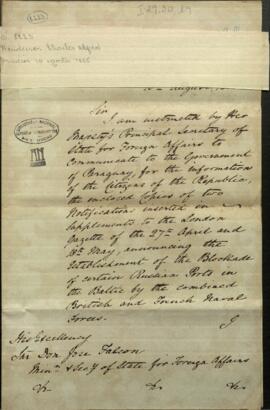 I-29.30.19
1223
1223
Henderson Charles Alfred
Sir
I am instructed by Her
Majesty's Principal Secretary of
State for Foreign Affairs to
Communicate to the Government
of Paraguay, for the information
of the Citizens of the Republic,
the enclosed Copies of two
Notifications inserted in
Supplements to the London
Gazette of the 27th April and
18th May, announcing the
Establishment of the Blockade
of certain Russian Ports in
the Baltic by the combined
British and French Naval
Forces.
His Excellency
Sar Don Jose Falcon
Minr & Secy of State for Foreign Affairs
&c. &c. &c.